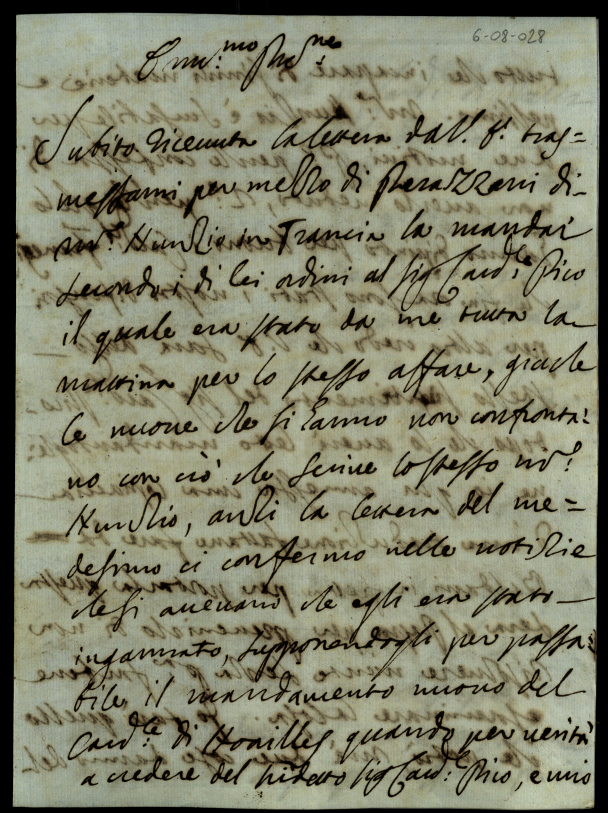 6-08-028
Em.mo P̃ne
Subito riceuuta la lettera dall' E. tras=
messami per mezzo di Perazzani di
m.r Nunzio in Francia la mandai
secondo i di lei ordini al Sig.r Card.le Pico
il quale era stato da me tutta la
mattina per lo stesso affare, giache
le nuoue che si hanno non confronta=
no con ciò che scriue lo stesso m.r
Nunzio, anzi la lettera del me=
desimo ci confermo nelle notizie
che si aueuano che egli era stato
ingannato, supponendogli per passa=
bile il mandamento nuouo del
Card.le di Noailles quando per uerità
a credere del sudetto Sig.r Card.le Pico, e mio